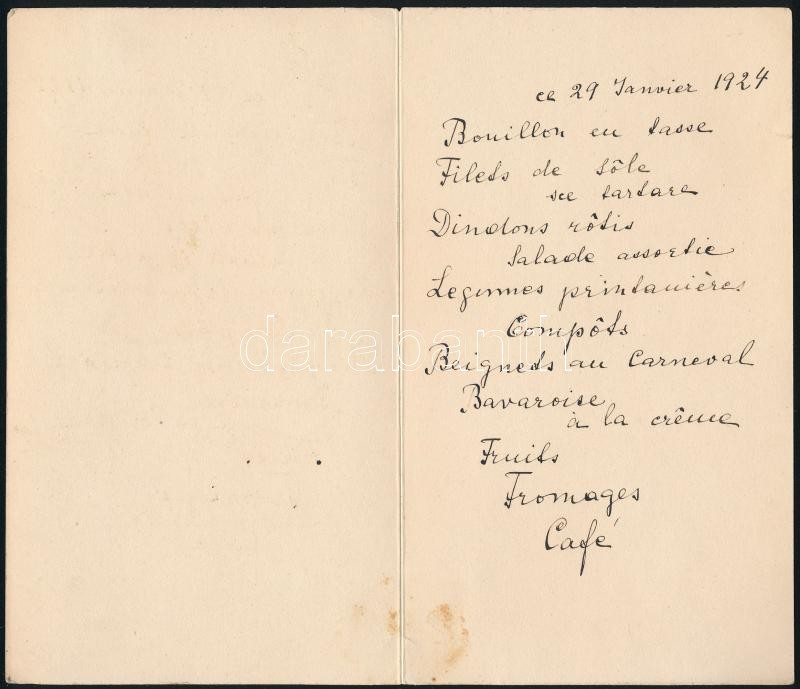 ce 29 Janvier 1924
Bouillon en tasse
Filets de sôle
sce tartare
Dindons rôtis
Salade assortie
Legumes printanières
Compôts
darabanth
Beigneds au Carneval
Bavaroise
à la crême
Fruits
Fromages
Café